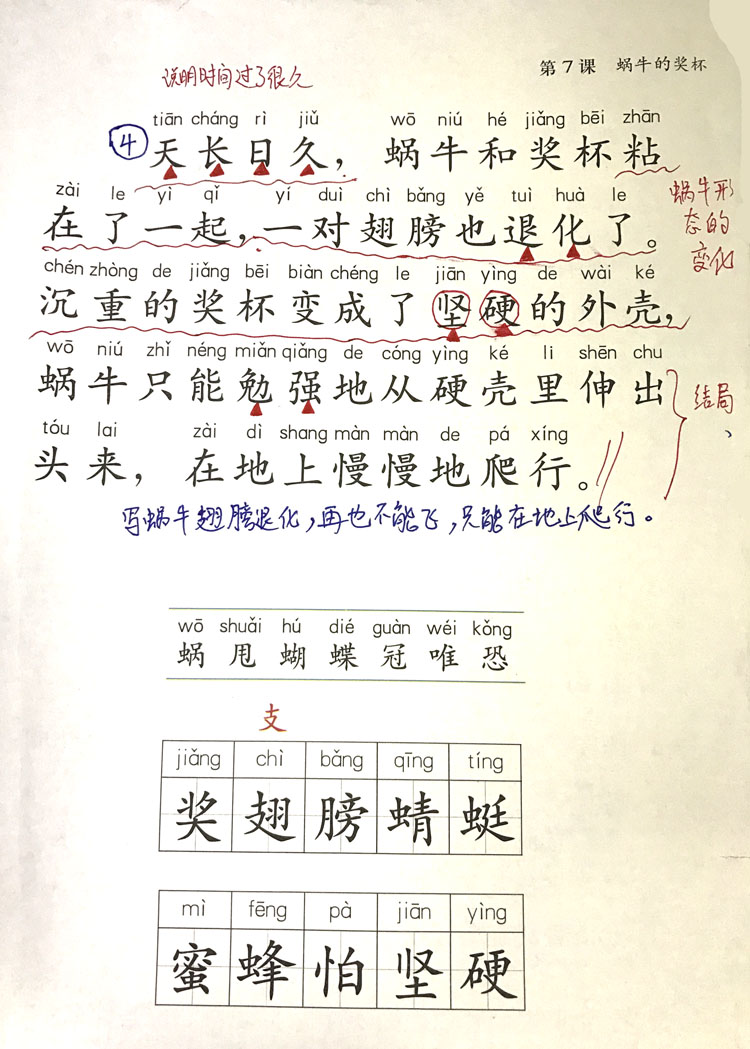 第7课 蜗牛的奖杯
说明时间过了很久
tiān cháng rì jiǔ wō niú hé jiǎng bēi zhān
④ 天长日久，蜗牛和奖杯粘
zài le yì qǐ yí duì chì bǎng yě tuì huà le
在了一起，一对翅膀也退化了。
蜗牛形
态的
变化
chén zhòng de jiǎng bēi biàn chéng le jiān yìng de wài ké
沉重的奖杯变成了坚硬的外壳，
wō niú zhǐ néng miǎn qiǎng de cóng yìng ké li shēn chu
蜗牛只能勉强地从硬壳里伸出
结局、
tóu lai zài dì shang màn màn de pá xíng
头来，在地上慢慢地爬行。
写蜗牛翅膀退化，再也不能飞，只能在地上爬行。
wō shuǎi hú dié guàn wéi kǒng
蜗 甩 蝴 蝶 冠 唯 恐
支
jiǎng chì bǎng qīng tíng
奖 翅 膀 蜻 蜓
mì fēng pà jiān yìng
蜜 蜂 怕 坚 硬